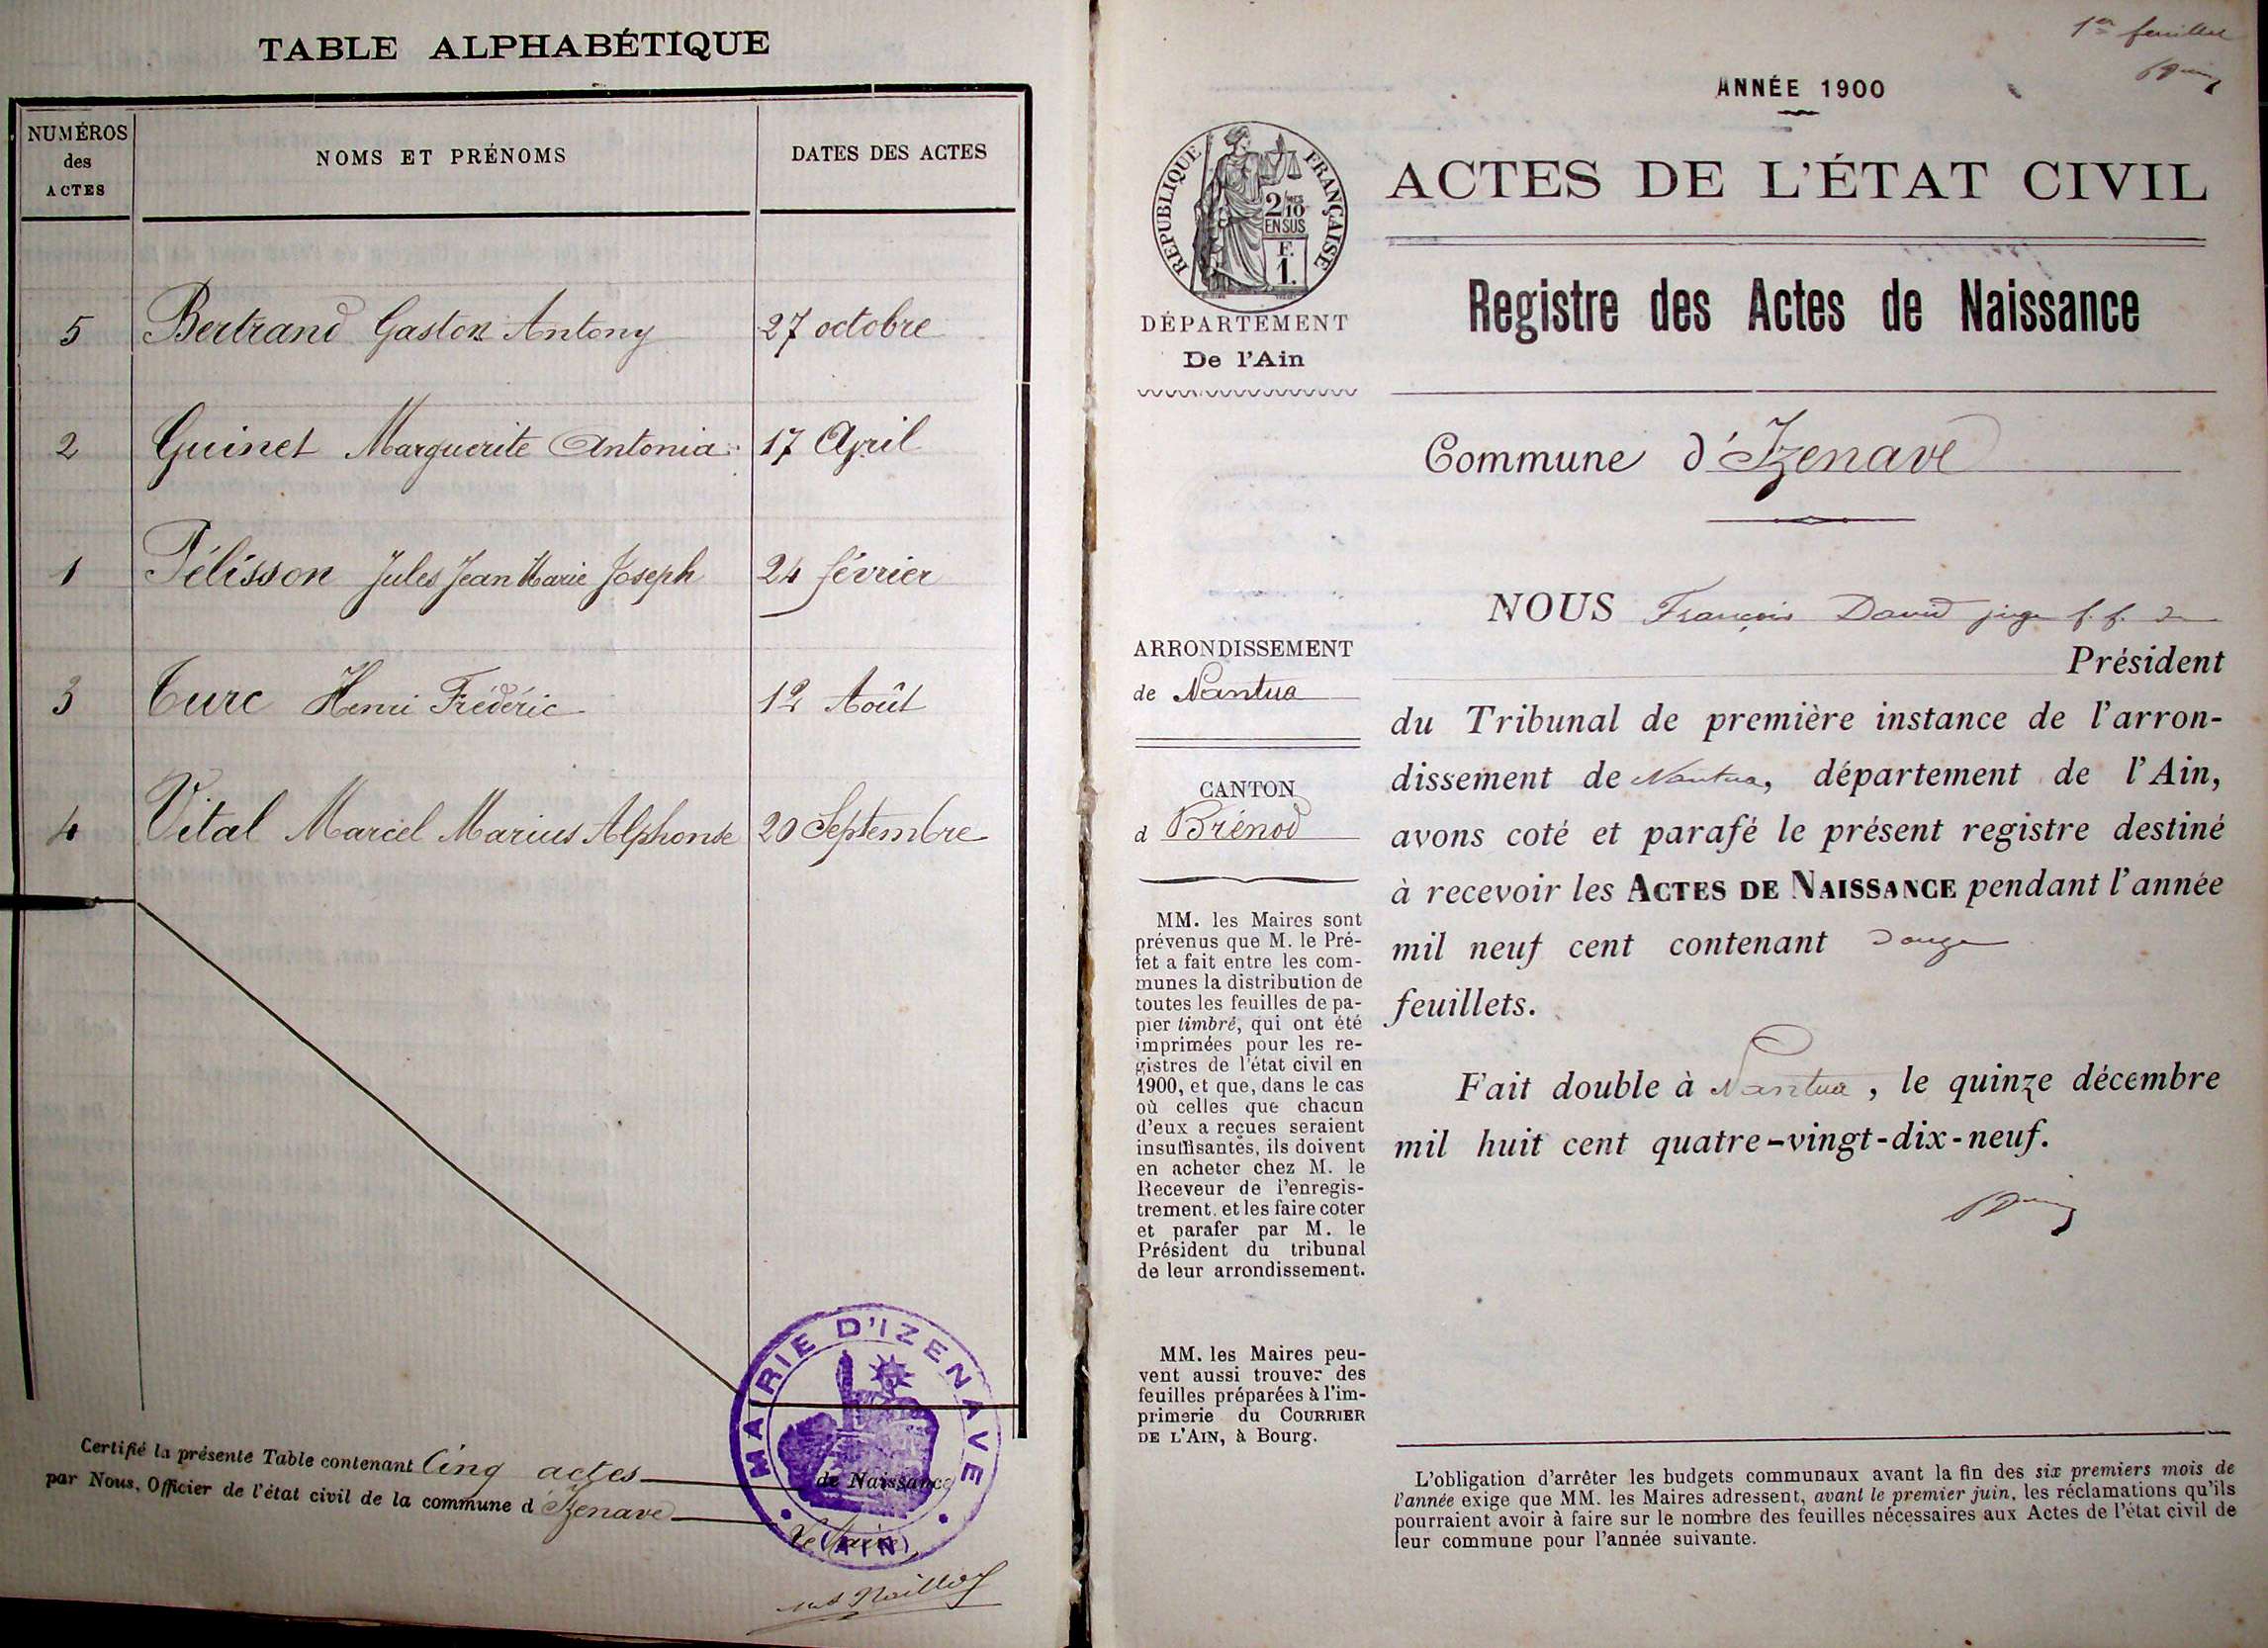 TABLE ALPHABÉTIQUE
NUMÉROS des ACTES
NOMS ET PRÉNOMS
DATES DES ACTES
5 Bertrand Gaston Antony 27 octobre
2 Guinet Marguerite Antonia 17 April
1 Pélisson Jules Jean Marie Joseph 24 février
3 Turc Henri Frédéric 12 Août
4 Vital Marcel Marius Alphonse 20 Septembre
Certifié la présente Table contenant Cinq actes de Naissance
par Nous, Officier de l'état civil de la commune d'Izenave
MAIRIE D'IZENAVE
(AIN)
Le Maire,
1er feuillet
ANNÉE 1900
RÉPUBLIQUE FRANÇAISE
2/10 EN SUS
F. 1.
DÉPARTEMENT
De l'Ain
ACTES DE L'ÉTAT CIVIL
Registre des Actes de Naissance
Commune d'Izenave
ARRONDISSEMENT
de Nantua
CANTON
d Brénod
MM. les Maires sont
prévenus que M. le Pré-
fet a fait entre les com-
munes la distribution de
toutes les feuilles de pa-
pier timbré, qui ont été
imprimées pour les re-
gistres de l'état civil en
1900, et que, dans le cas
où celles que chacun
d'eux a reçues seraient
insuffisantes, ils doivent
en acheter chez M. le
Receveur de l'enregis-
trement, et les faire coter
et parafer par M. le
Président du tribunal
de leur arrondissement.
MM. les Maires peu-
vent aussi trouver des
feuilles préparées à l'im-
primerie du COURRIER
DE L'AIN, à Bourg.
NOUS François David juge f. f. de
Président
du Tribunal de première instance de l'arron-
dissement de Nantua, département de l'Ain,
avons coté et parafé le présent registre destiné
à recevoir les ACTES DE NAISSANCE pendant l'année
mil neuf cent contenant douze
feuillets.
Fait double à Nantua, le quinze décembre
mil huit cent quatre-vingt-dix-neuf.
L'obligation d'arrêter les budgets communaux avant la fin des six premiers mois de
l'année exige que MM. les Maires adressent, avant le premier juin, les réclamations qu'ils
pourraient avoir à faire sur le nombre des feuilles nécessaires aux Actes de l'état civil de
leur commune pour l'année suivante.